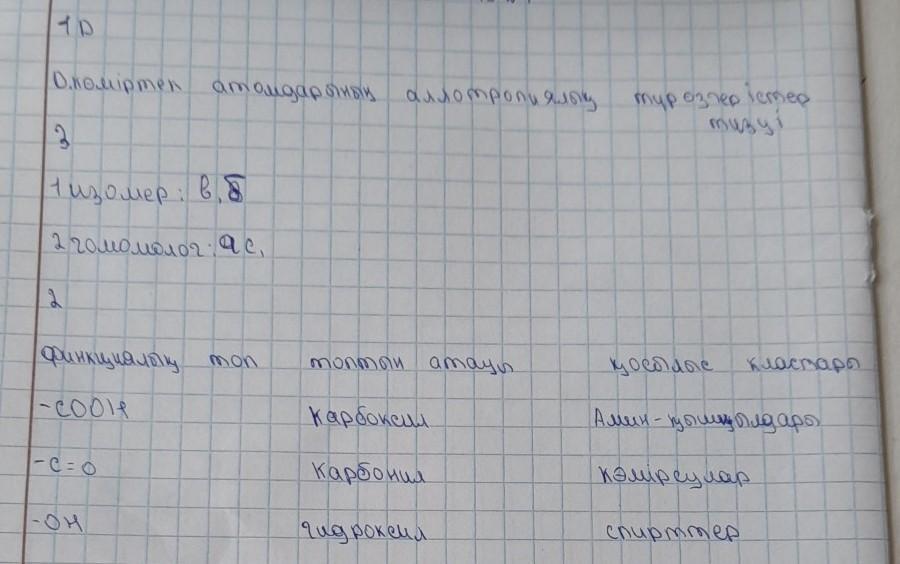 1D
D.көміртек атомдарының аллотропиялық түрөзгерістер
тизуі
3
1изомер: в, б
2гомомолог: а с,
2
Финкциялық топ топтын атауы қосылыс кластары
-COOH Карбоксил Амин-қышқылдары
-C=O Карбонил Көмірсулар
-OH гидроксил спирттер